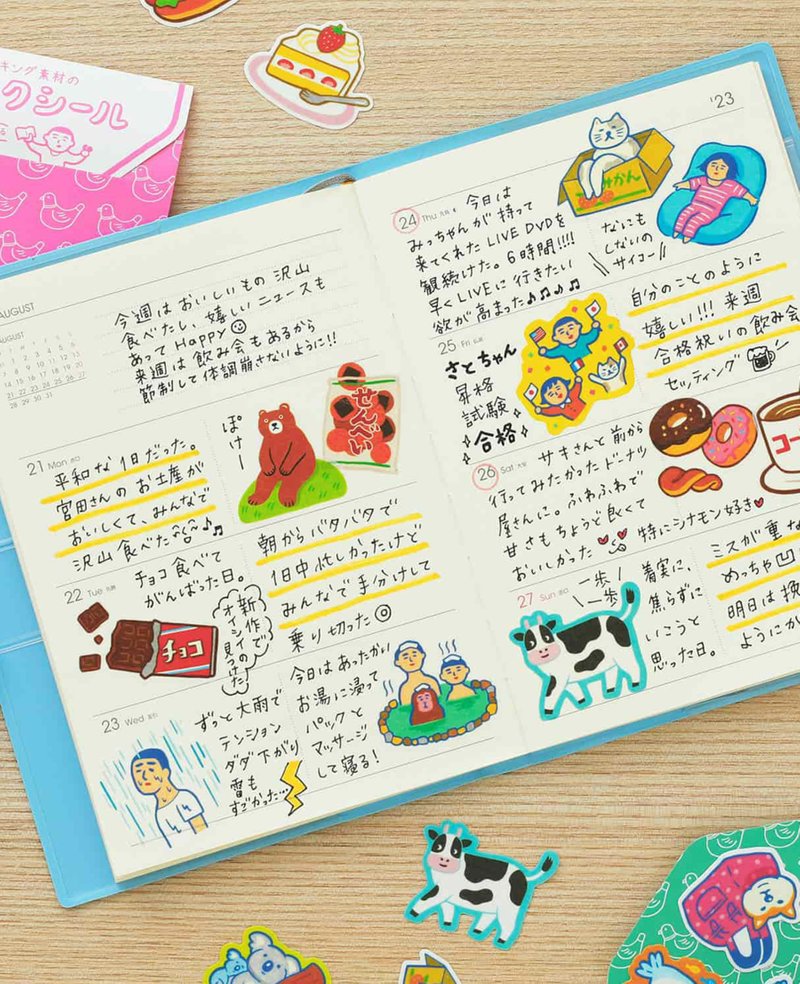 キング素材の
クシール
AUGUST
AUGUST
今週はおいしいもの沢山
食べたし、嬉しいニュースも
あってHappy
来週は飲み会もあるから
節制して体調崩さないように!!
21 Mon
平和な1日だった。
宮田さんのお土産が
おいしくて、みんなで
沢山食べた
ぽけー
せんべい
22 Tue
チョコ食べて
がんばった日。
チョコ
新作で
オイシイの
見つけた!
朝からバタバタで
1日中忙しかったけど
みんなで手分けして
乗り切った◎
23 Wed
ずっと大雨で
テンション
ダダ下がり
雷も
すごかった…
今日はあったかい
お湯に浸って
パックと
マッサージ
して寝る!
'23
24 Thu
今日は
みっちゃんが持って
来てくれたLIVE DVDを
観続けた。6時間!!!!
早くLIVEに行きたい
欲が高まった♪♪♪♪
みかん
なにも
しないの
サイコー
25 Fri
さとちゃん
昇格
試験
合格
自分のことのように
嬉しい!!! 来週
合格祝いの飲み会
セッティング
26 Sat
サキさんと前から
行ってみたかったドーナツ
屋さんに。ふわふわで
甘さもちょうど良くて
おいしかった
特にシナモン好き
コー
27 Sun
一歩
一歩
着実に、
焦らずに
いこうと
思った日。
ミスが重な
めっちゃ凹
明日は挽
ようにが